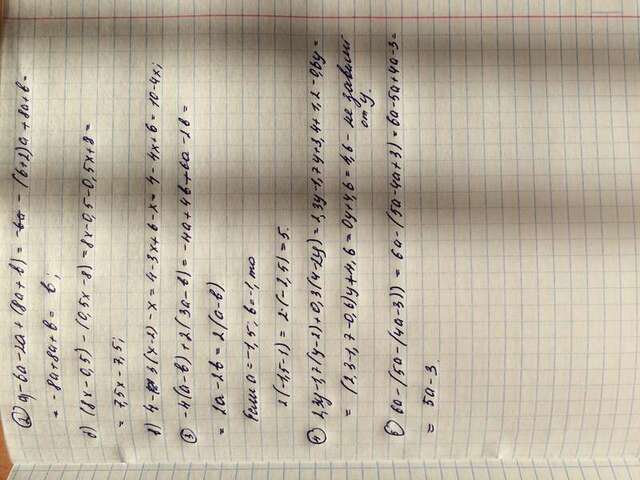 ② a) -6a-2a+(8a+b) = -6a - (6+2)a+8a+b=
= -8a+8a+b= b;
б) (8x-0,5)-(0,5x-8)=8x-0,5-0,5x+8=
= 7,5x-7,5;
в) 4-3(x-2)-x=4-3x+6-x=4-4x+6=10-4x;
③ -4(a-b)+2(3a-b)=-4a+4b+6a-2b=
= 2a-2b=2(a-b)
Если a=-1,5; b=-1, то
2(-1,5-1)=2·(-2,5)=5.
④ 2,3y-1,7(y-2)+0,3(4-2y)=2,3y-1,7y+3,4+1,2-0,6y=
= (2,3-1,7-0,6)y+4,6=0y+4,6=4,6- не зависит
от y.
⑤ 6a-(5a-(4a-3))=6a-(5a-4a+3)=6a-5a+4a-3=
= 5a-3.